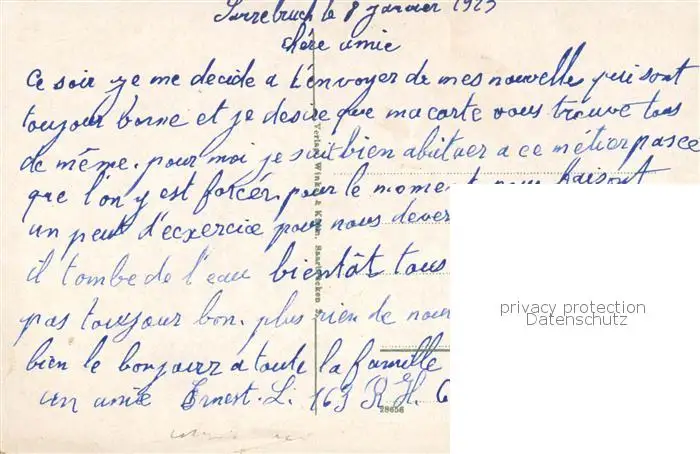 Sarrebruck le 8 janvier 1923
chère amie
Ce soir je me decide a t'envoyer de mes nouvelle qui sont
toujour bonne et je desire que ma carte vous trouve tous
de même. pour moi je suit bien abituer a ce metier pasce
que l'on y est forcér. pour le moment nous faisont
un peut d'ecxercice pour nous
il tombe de l'eau bientôt tous
pas toujour bon. plus rien de
bien le bonjour a toute la famille
un amie Ernest. L. 163 R.
Verlag Winkler & Saarbrücken 3.
28656
privacy protection
Datenschutz